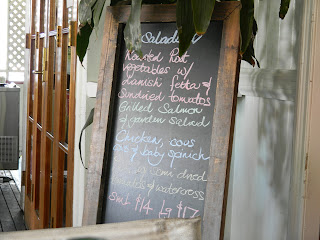 Salads
Roasted Root
vegetables w/
danish fetta &
sundried tomatos
Grilled Salmon
& garden salad
Chicken, cous
cous & baby spinich
semi dried
& watercross
sml $14 lg $17